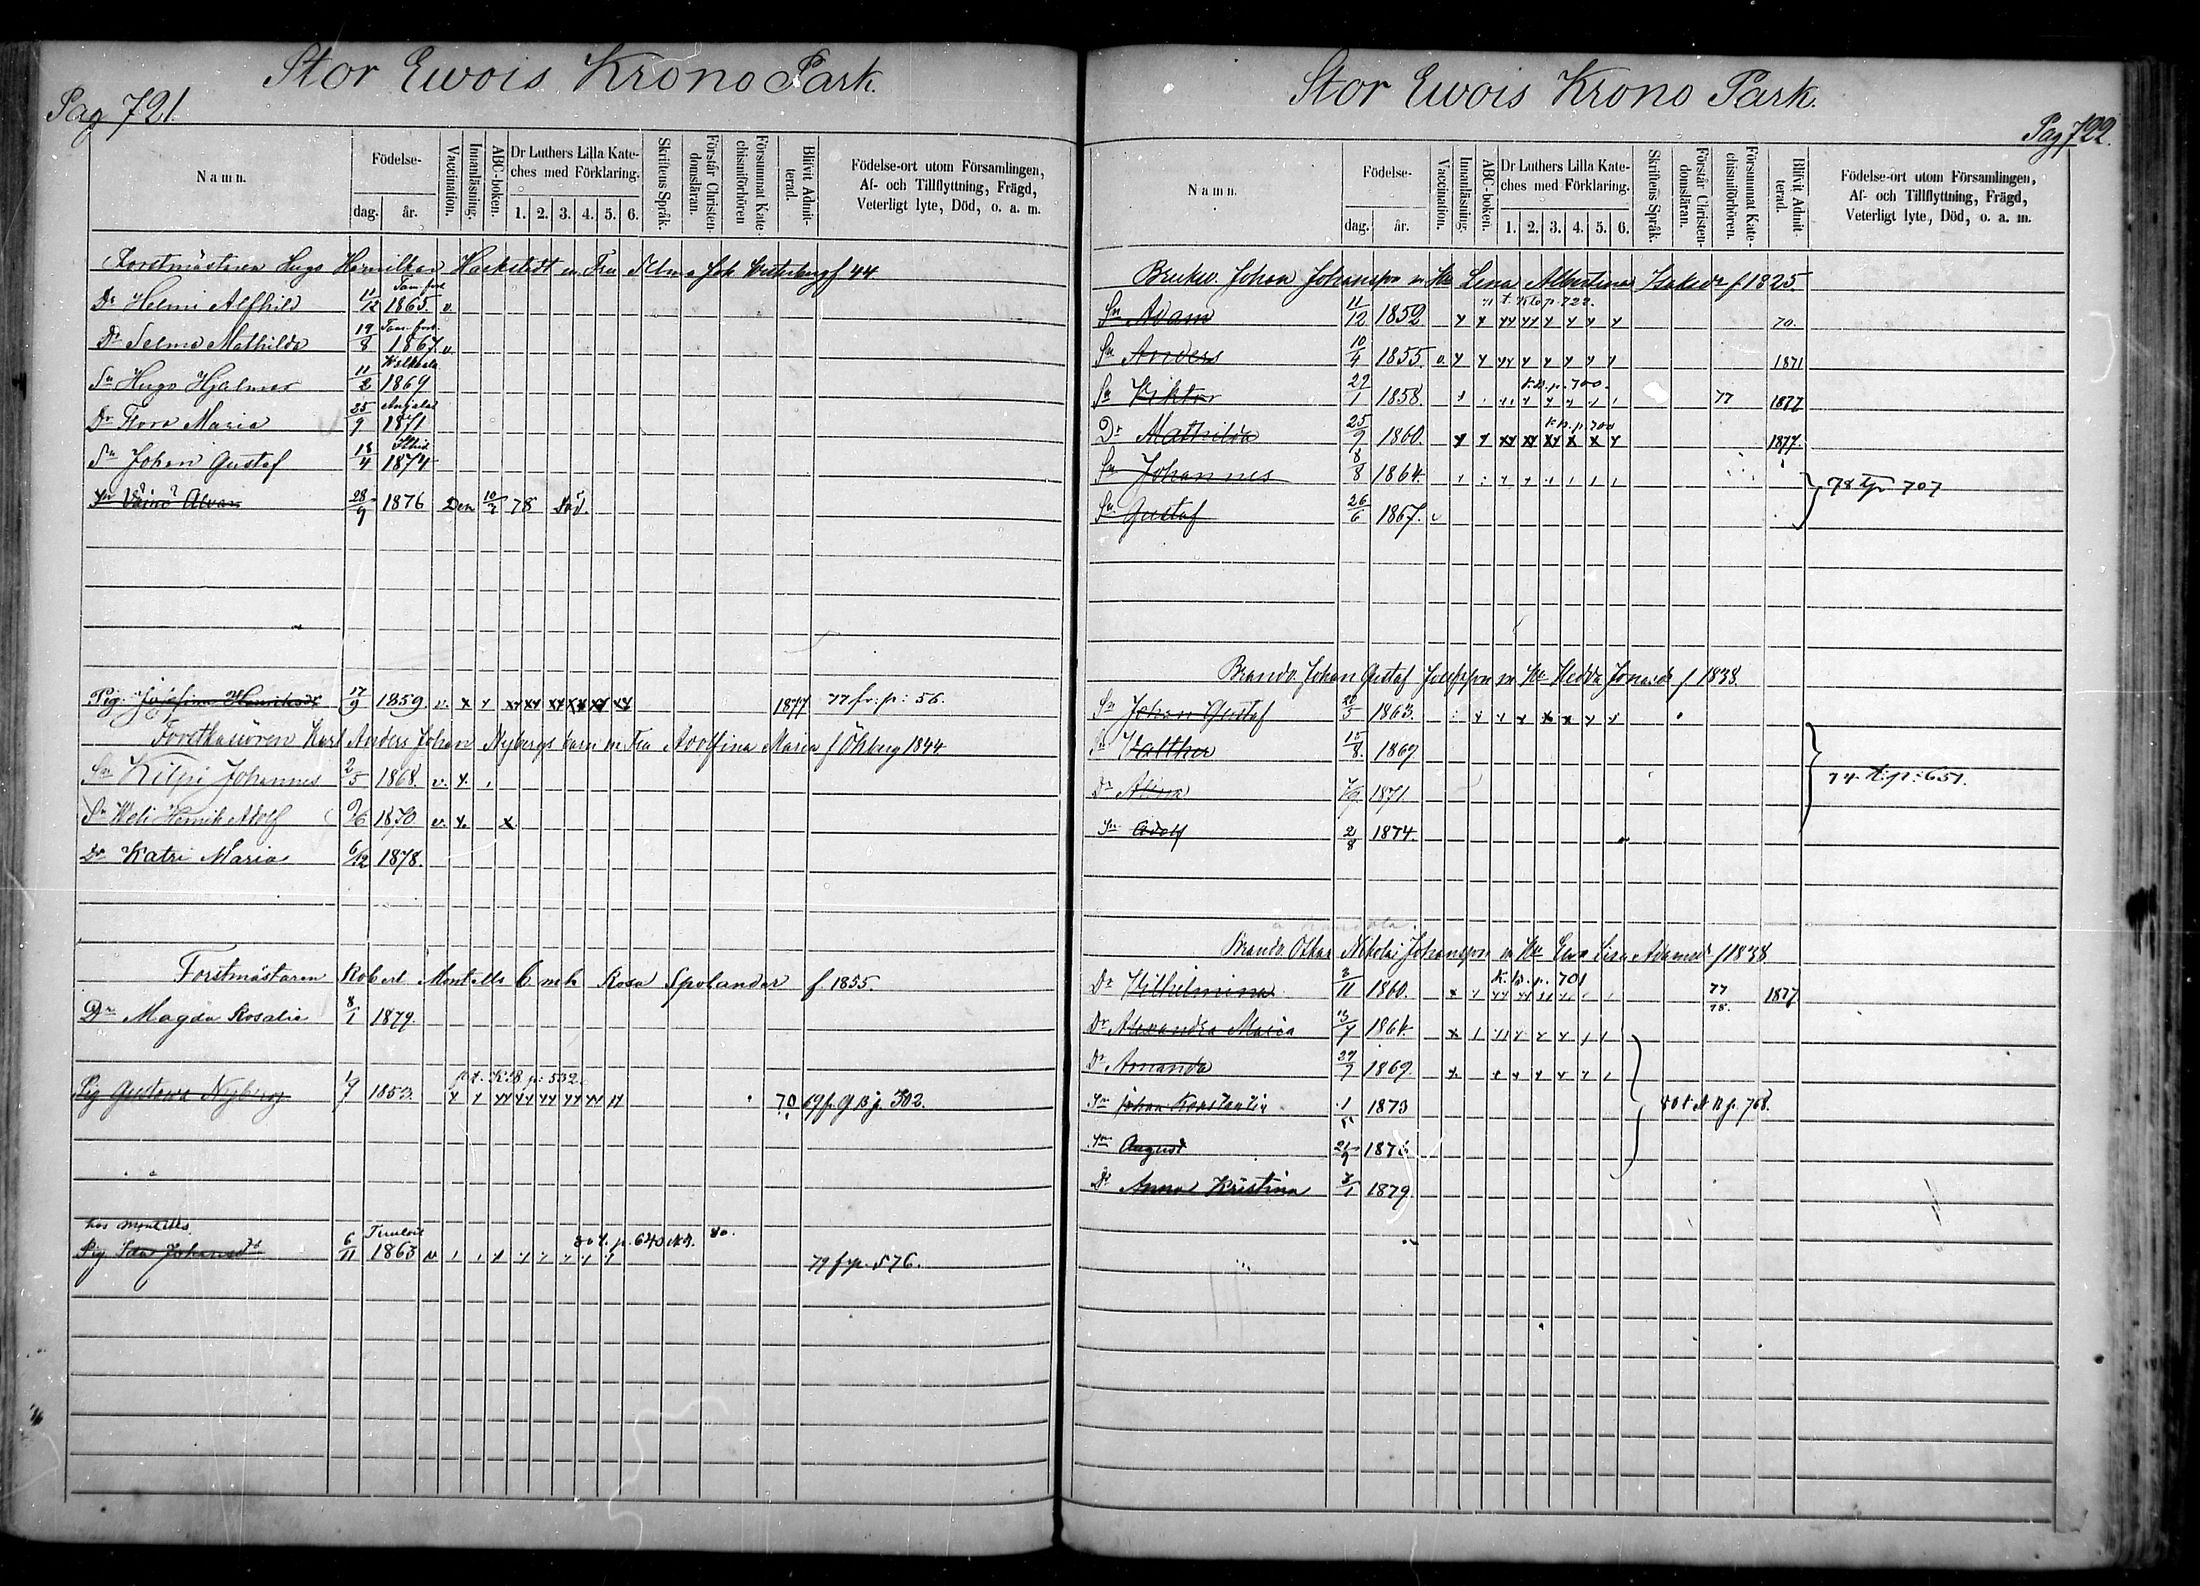 Stor Ewois Krono Park.
Pag 721.
Namn.
Födelse-
dag. år.
Vaccination.
Innanläsning.
ABC-boken.
Dr Luthers Lilla Kate-
ches med Förklaring.
1. 2. 3. 4. 5. 6.
Skriftens Språk.
Förstår Christen-
domsläran.
Försummat Kate-
chismiförhören
Blifvit Admit-
terad.
Födelse-ort utom Församlingen,
Af- och Tillflyttning, Frägd,
Veterligt lyte, Död, o. a. m.
Forstmästaren Hugo Hamilkar Hackstedt m Fru Selma Joh. f 44
Dr Helmi Alfhild 11/12 1865. v
Dr Selma Mathilda 19/8 1867. v
Sn Hugo Hjalmar 11/2 1869
Dr Flora Maria 25/9 1871
Sn Johan Gustaf 18/4 1874
Sn Väinö Alvar 28/9 1876 Den 10/2 78 död.
Pig. Josefina Henriksdr 17/9 1859 v. x 1877 77 fr: p: 56.
Forstkasören Karl Anders Johan Nybergs barn m Fru Adolfina Maria f Öhberg 1844
Sn Kilpi Johannes 2/5 1868. v.
Sn Weli Henrik Adolf 9/6 1870 v. x
Dr Katri Maria 6/12 1878.
Forstmästaren Robert Montells b m h Rosa Spolander f 1855.
Dr Magda Rosalie 8/1 1879.
t. KB p: 532.
Pig Gustava Nyberg 1/9 1853. 70 69 fr q B p. 302.
hos Montells.
Pig Ida Johansdr 6/11 1863 80 t. p. 640 80.
79 f p. 576.
Stor Ewois Krono Park.
Pag 722.
Namn.
Födelse-
dag. år.
Vaccination.
Innanläsning.
ABC-boken.
Dr Luthers Lilla Kate-
ches med Förklaring.
1. 2. 3. 4. 5. 6.
Skriftens Språk.
Förstår Christen-
domsläran.
Försummat Kate-
chismiförhören.
Blifvit Admit-
terad.
Födelse-ort utom Församlingen,
Af- och Tillflyttning, Frägd,
Veterligt lyte, Död, o. a. m.
Brukw. Johan Johansson m Hu Lena Albertina Isaksdr f 1825.
Sn Adam 11/12 1852 70.
Sn Anders 10/4 1855. v. 1871
K.B. p. 700.
Sn Viktor 27/1 1858. 77 1877
K B. p. 700
Dr Mathilda 25/9 1860. 1877.
Sn Johannes 8/8 1864.
78 t p 707
Sn Gustaf 26/6 1867. v
Brandv. Johan Gustaf Josefsson m Hu Hedda Jonasdr f. 1838.
Sn Johan Gustaf 20/5 1863.
Sn Walther 15/8. 1869
74. t: p: 651.
Dr Alina 1871.
Sn Adolf 2/8 1874.
Brandv. Oskar Nikolai Johansson m Hu Ewa Lisa Adamsdr f 1838
K. B. p. 701
Dr Wilhelmina 3/11 1860. 77 78. 1877
Dr Alexandra Maria 13/7 1864.
Dr Amanda 27/7 1869.
Sn Johan Konstantin 1873
80 t p. 768.
Sn August 1876
Dr Anna Kristina 3/1 1879.